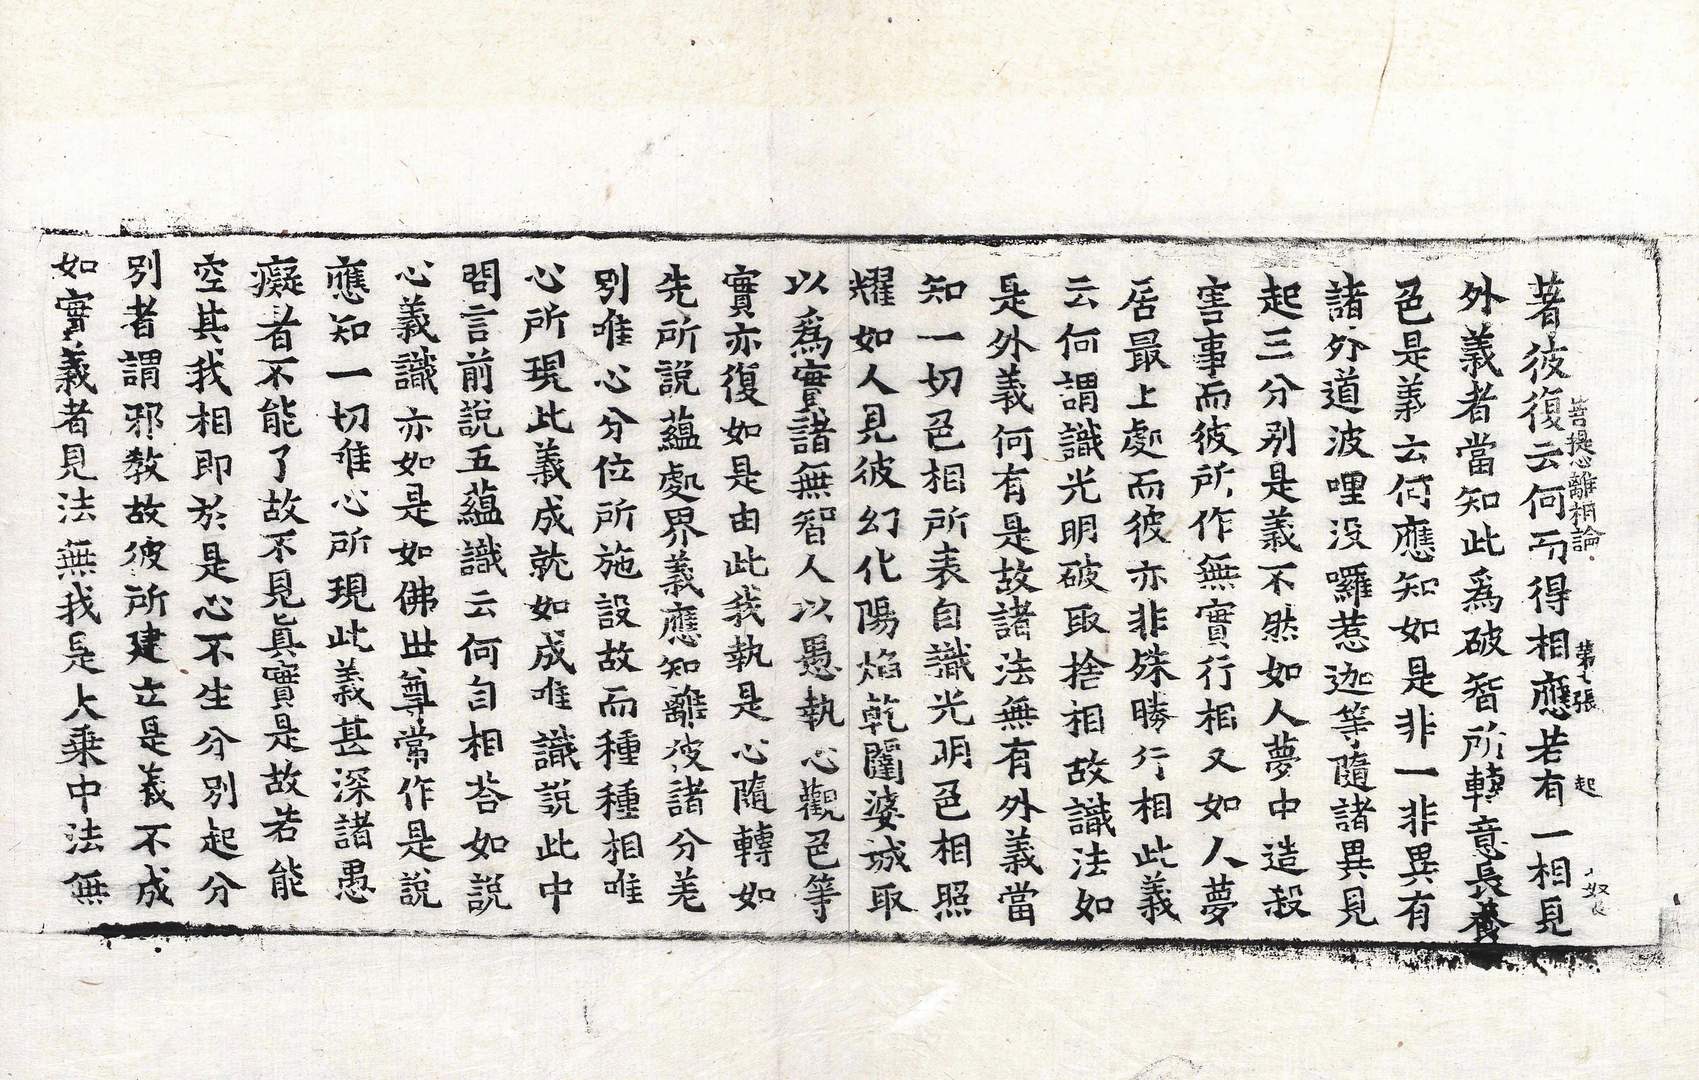 菩提心離相論 第七張 起
著彼復云何而得相應若有一相見
外義者當知此爲破智所轉意長養
色是義云何應知如是非一非異有
諸外道波哩没囉惹迦等隨諸異見
起三分別是義不然如人夢中造殺
害事而彼所作無實行相又如人夢
居最上處而彼亦非殊勝行相此義
云何謂識光明破取捨相故識法如
是外義何有是故諸法無有外義當
知一切色相所表自識光明色相照
耀如人見彼幻化陽焰乾闥婆城取
以爲實諸無智人以愚執心觀色等
實亦復如是由此我執是心隨轉如
先所說蘊處界義應知離彼諸分差
別唯心分位所施設故而種種相唯
心所現此義成就如成唯識說此中
問言前說五蘊識云何自相荅如說
心義識亦如是如佛世尊常作是說
應知一切唯心所現此義甚深諸愚
癡者不能了故不見眞實是故若能
空其我相即於是心不生分別起分
別者謂邪教故彼所建立是義不成
如實義者見法無我是大乗中法無